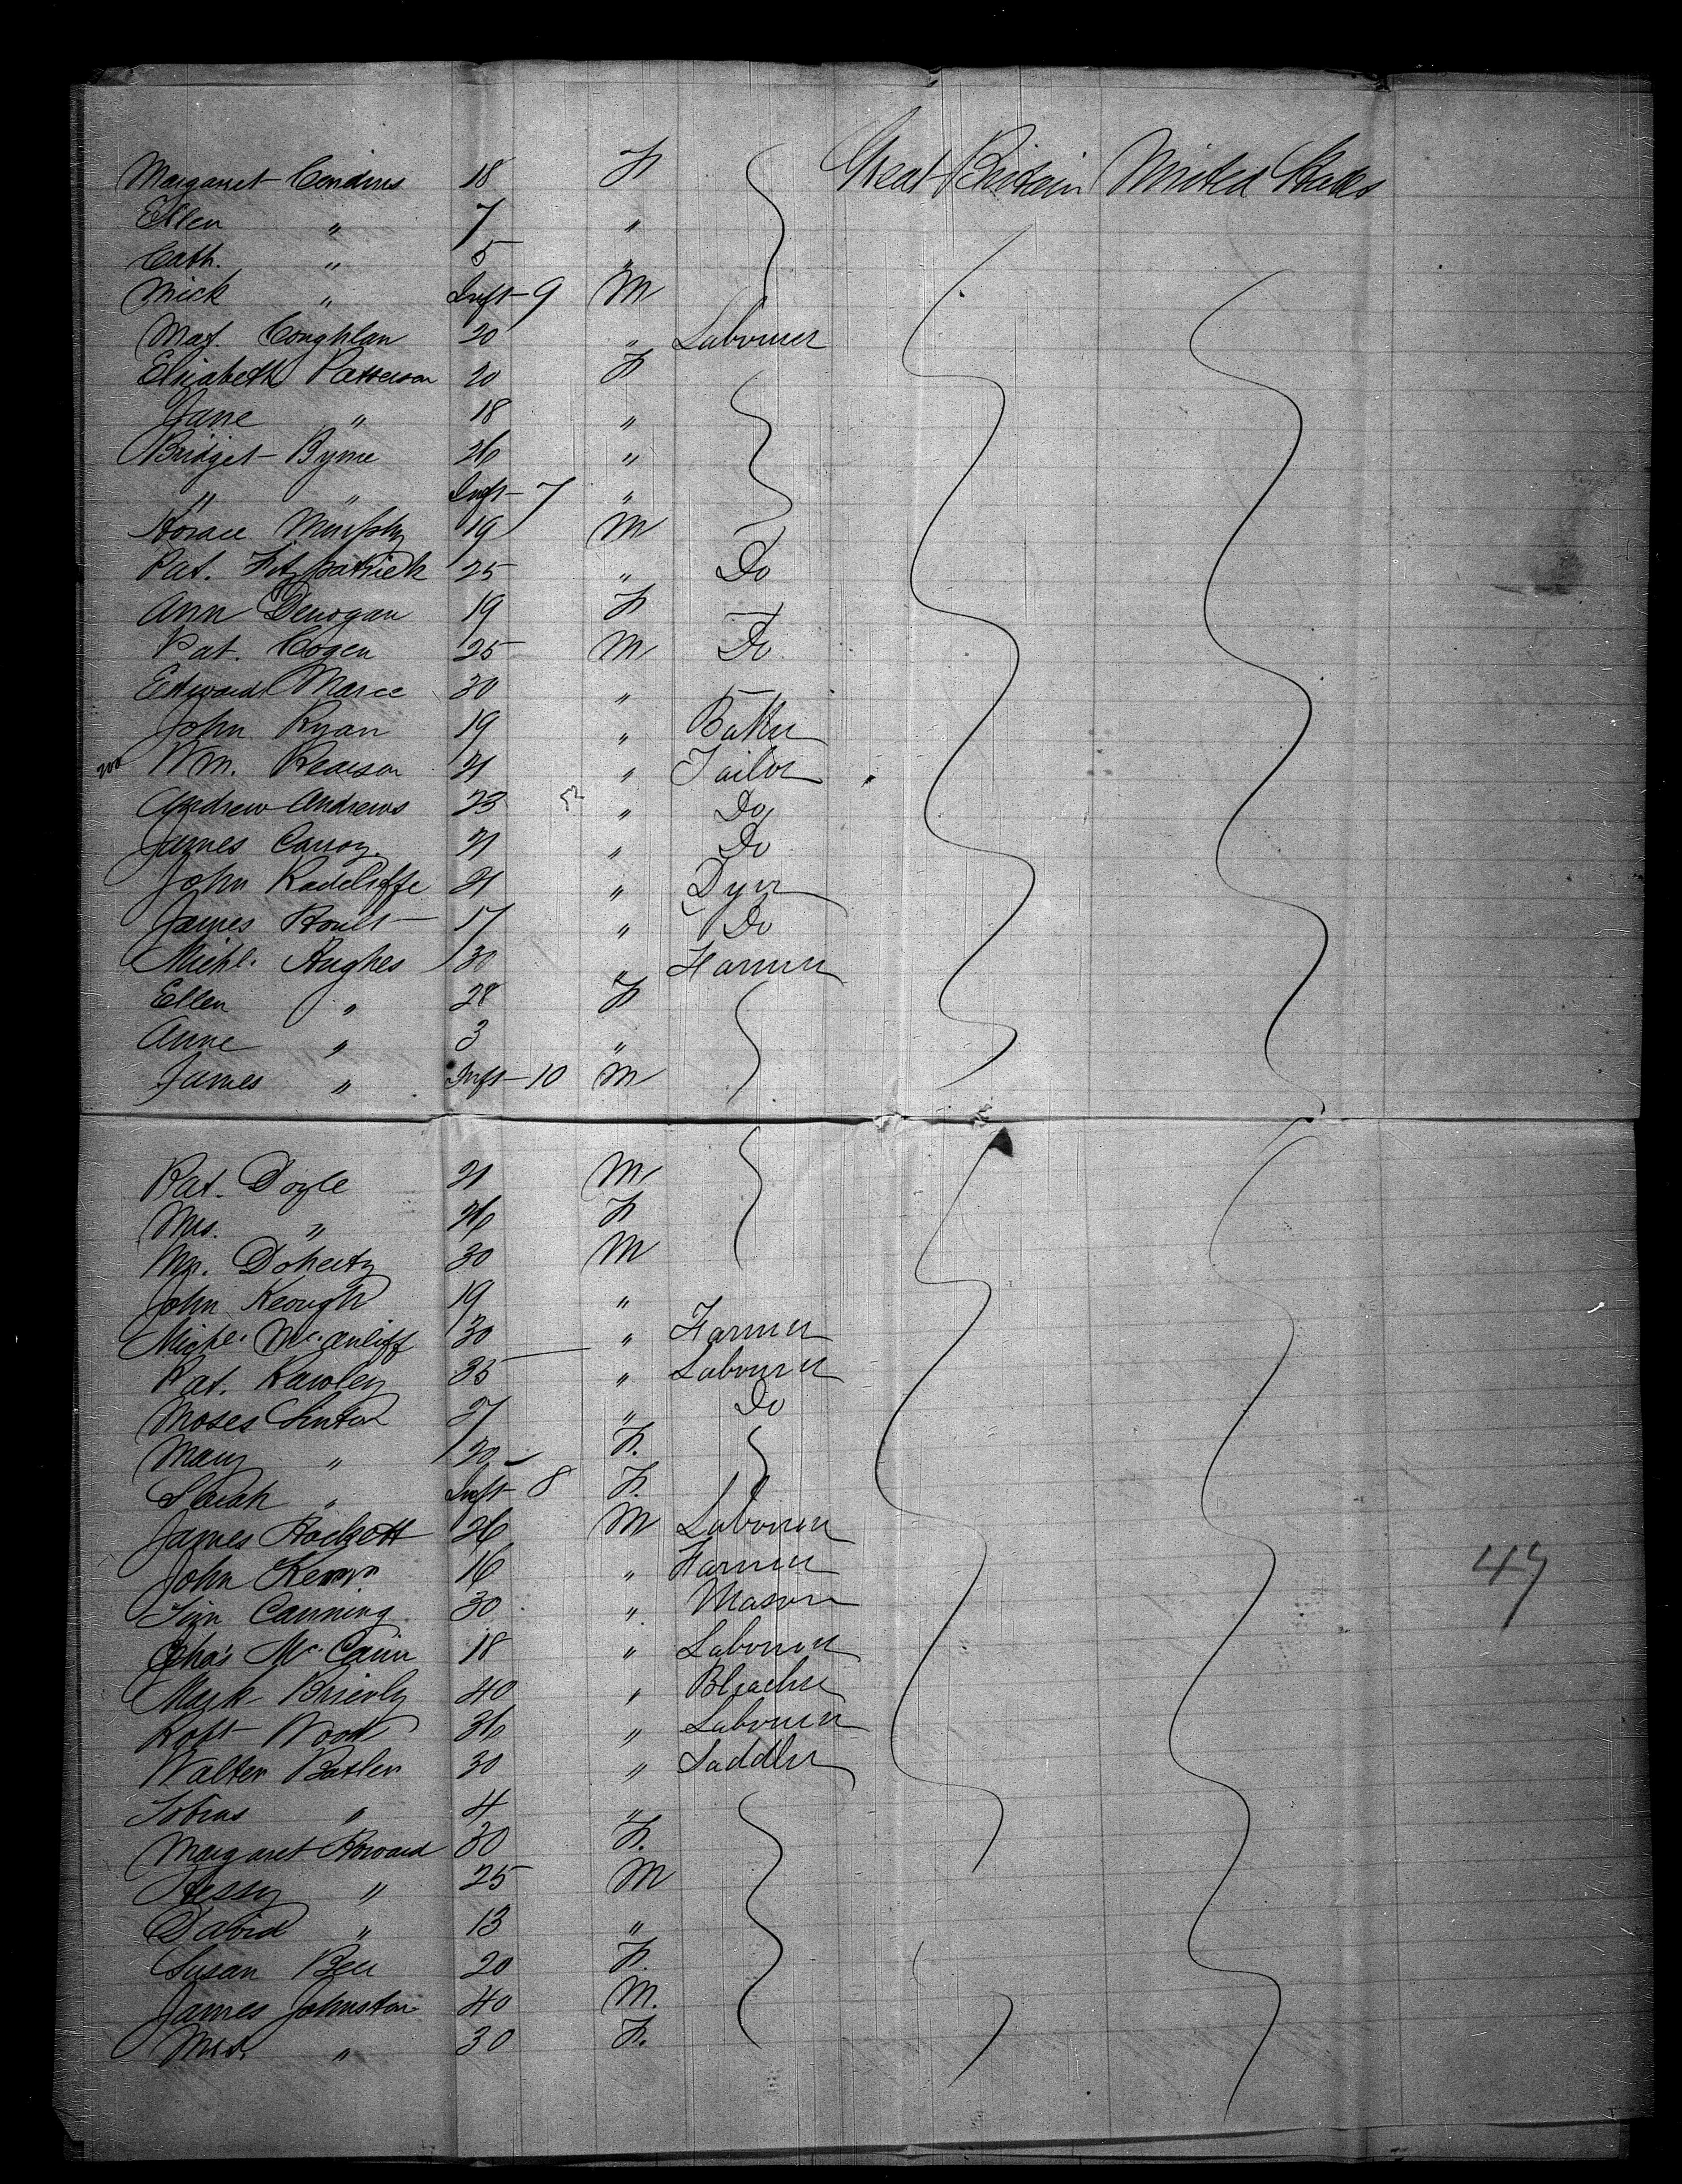 Margaret Condins 18 F Great Britain United States
Ellen " 7 "
Cath. " 5 "
Mick " Inft 9 M
Mat. Coughlan 20 " Labourer
Elizabeth Patterson 20 F
Jane " 18 "
Bridget Byrne 26 "
" " Inft 7 "
Horace Murphy 19 M
Pat. Fitzpatrick 25 " Do
Ann Denogan 19 F —
Pat. Cogen 25 M Do
Edward Maree 30 " —
John Ryan 19 " Baker
200 Wm. Pearson 21 " Tailor
Andrew Andrews 23 " Do
James Carroy 21 " Do
John Radcliffe 21 " Dyer
James Hoult 17 " Do
Michl. Hughes 30 " Farmer
Ellen " 28 F
Anne " 3 "
James " Inft 10 M
Pat. Doyle 21 M
Mrs. " 26 F
Mr. Doherty 30 M
John Keough 19 "
Michl. McAuliff 30 " Farmer
Pat. Rawley 35 " Labourer
Moses Linton 27 " Do
Mary " 20 F.
Sarah " Inft 8 F.
James Hockott 26 M Labourer
John Kemp 16 " Farmer
Jim Canning 30 " Mason
Chas McCann 18 " Labourer
Mark Brierly 40 " Bleacher
Robt Wood 36 " Labourer
Walter Butler 30 " Saddler
Tobias " 4 "
Margaret Howard 30 F.
Hessy " 25 M
David " 13 "
Susan Bell 20 F.
James Johnston 40 M.
Mrs. " 30 F.
49